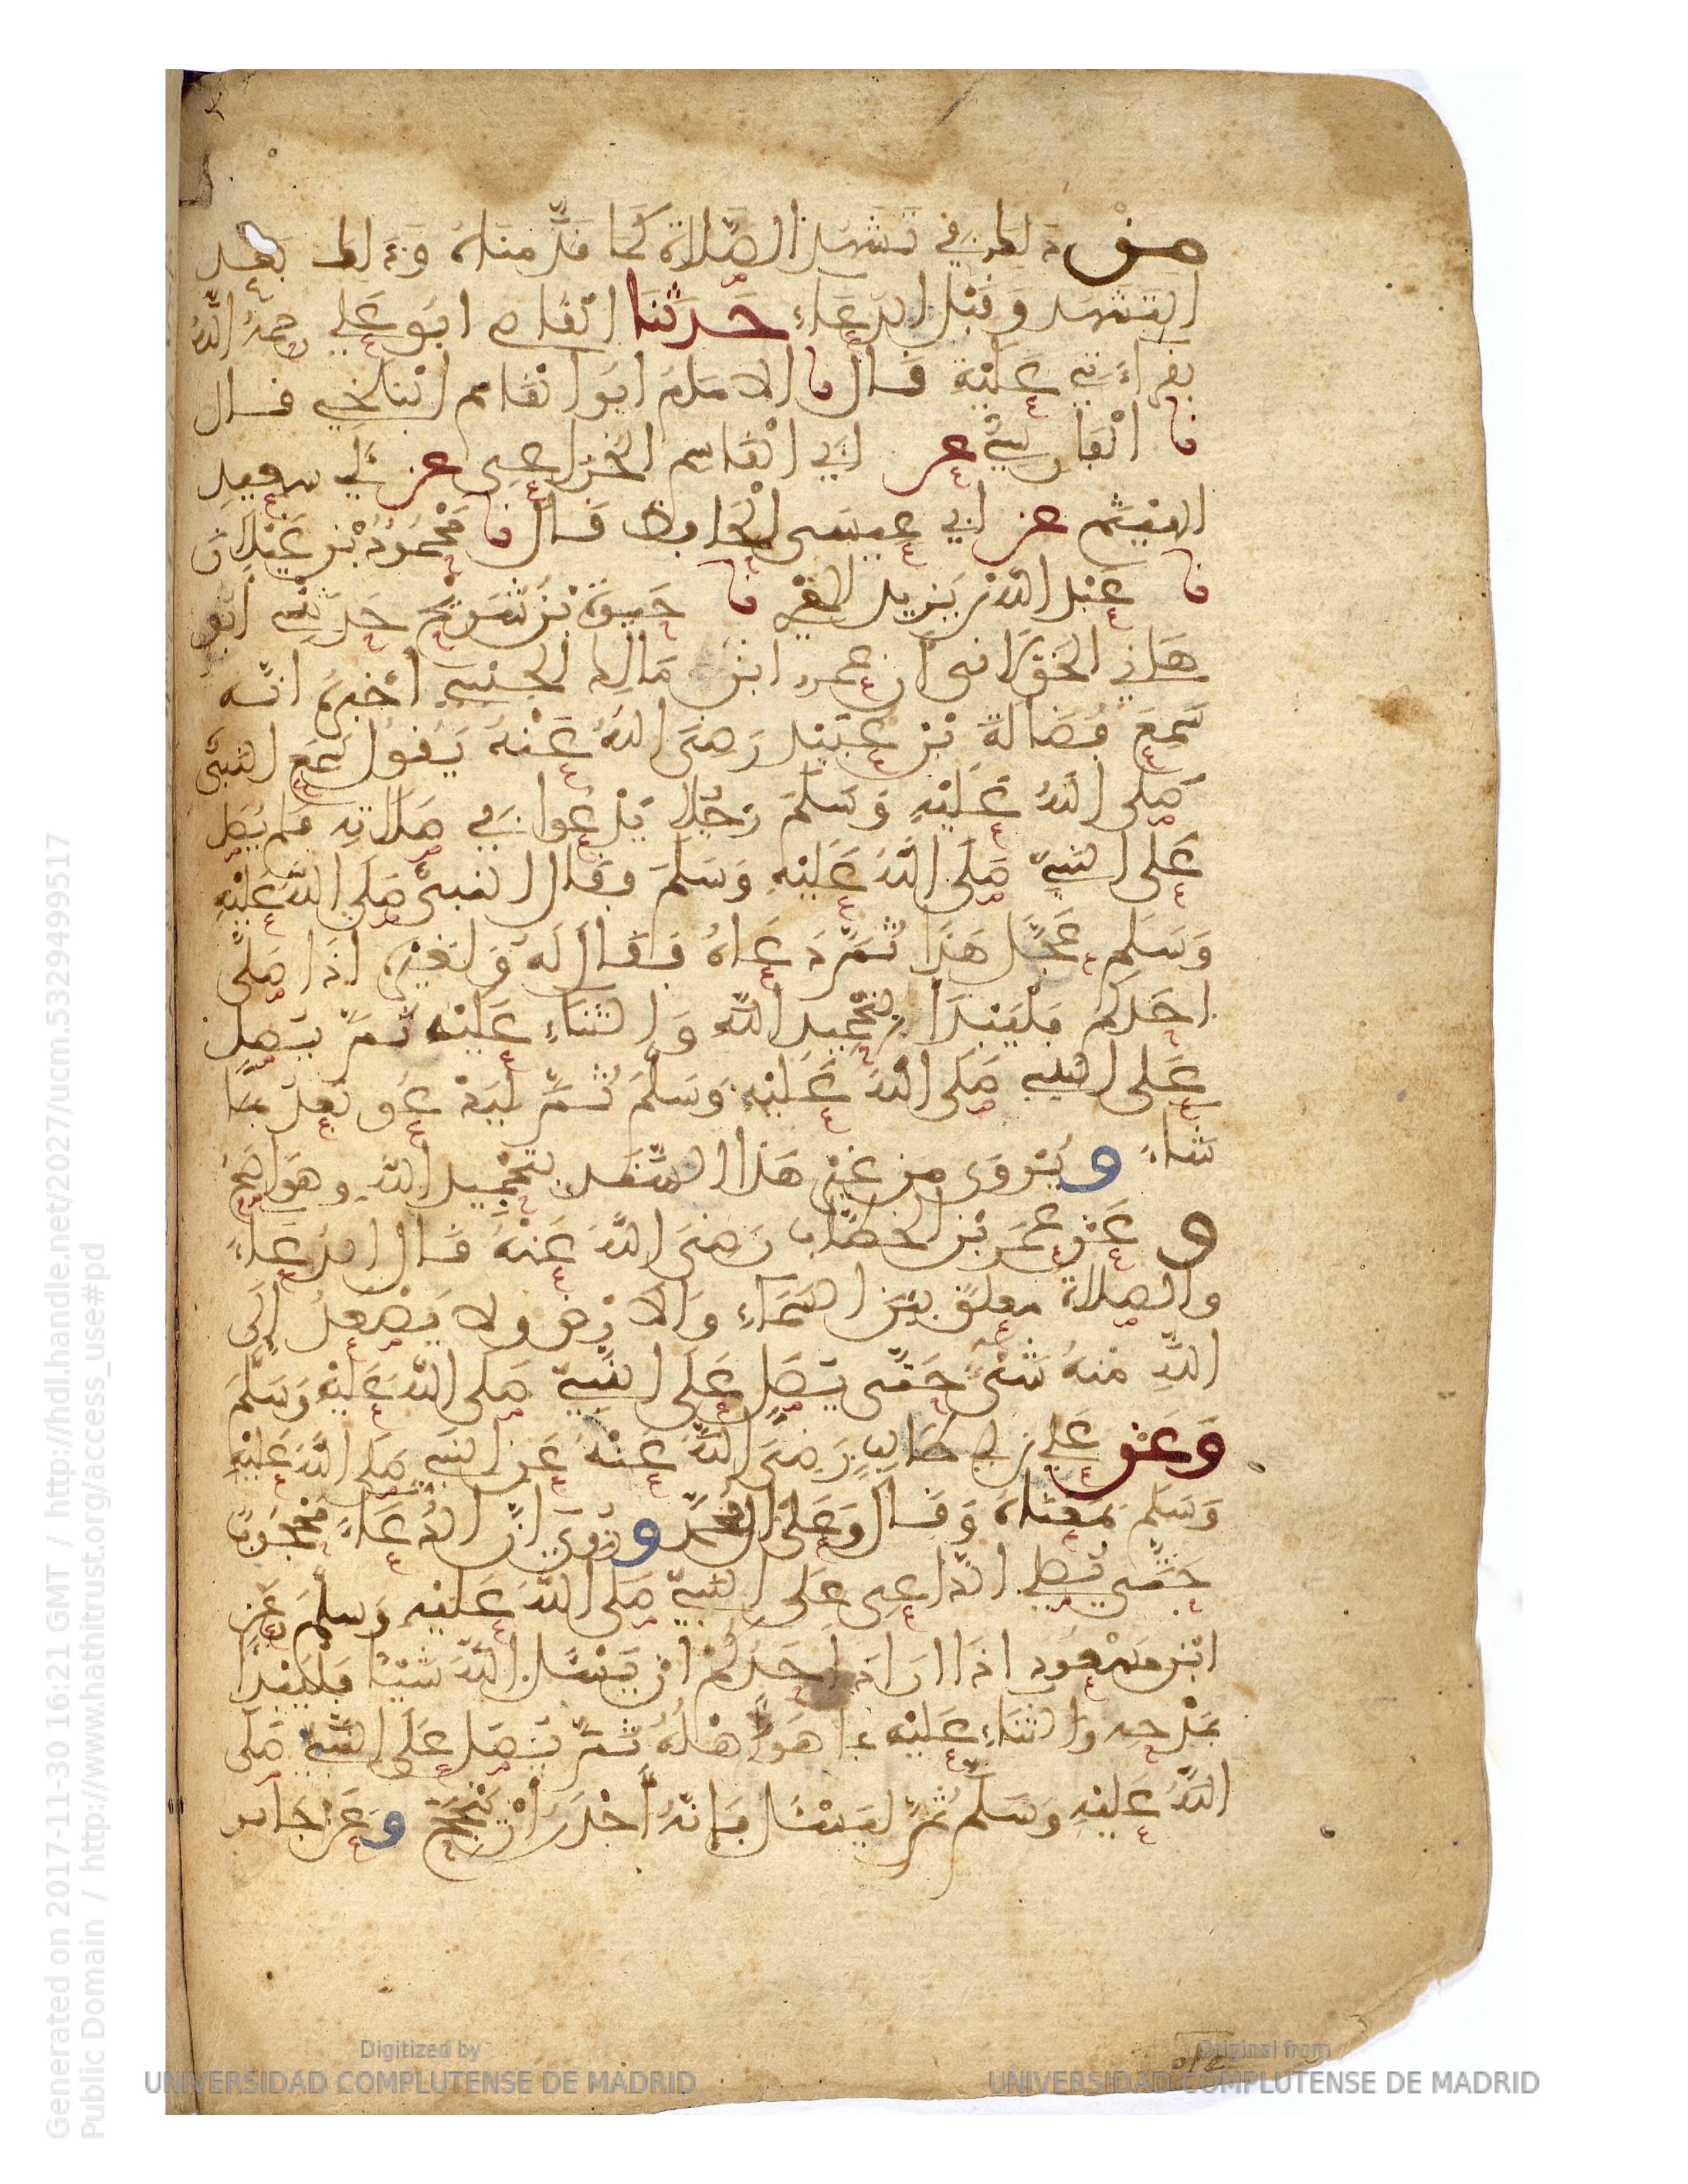 مِنْ ذلك في تَشَهد الصّلاة كَما قدَّمناهُ وَذلك بَعْد
التشهد وقبْل الدعَاءِ حَدثنا القاضي ابو علي رحمهُ اللهُ
بقراءتي عَليْه قَال نا الامامُ ابو القاسم البلخي قال
نا الْفارسيُّ عن ابي القاسِم الخزاعي عن ابي سعيد
الهيثم عن ابي عيسى الحافظ قَال نا مَحْمُودُ بْن غَيْلان
نا عَبْد الله بْن يَزيد المقري نا حَيوة بْن شُرَيْح حَدثني ابو
هَاني الخَوْلاني أن عمرو ابن مَالك الجنبي أخبره انّه
سَمِعَ فُضَالة بْن عُبَيْد رَضيَ اللهُ عَنْهُ يَقول سَمعَ النبيُّ
صَلى اللهُ عَليْهِ وَسَلمَ رَجُلا يَدْعوا في صَلاتِه فلم يُصَلّ
عَلى النبيّ صَلى اللهُ عَليْهِ وَسَلمَ فقال النبيُّ صَلى اللهُ عَليْهِ
وَسَلم عَجَّل هَذا ثُمَّ دَعَاهُ فَقال لَه وَلغيْرِهِ اذا صَلّى
احَدكم فَلْيَبْدَأ بتحْمِيد اللهِ وَالثناءِ عَليْه ثمَّ يُصَلّ
عَلى النبي صَلى اللهُ عَليْهِ وَسَلمَ ثُمَّ ليَدْعو بَعدُ بمَا
شَاءَ ويُرْوَى من غيْر هَذا السَّنَد بتَمْجِيد اللهِ وهوَ اصَحّ
وعَنْ عُمَر بْن الخطاب رَضيَ اللهُ عَنْهُ قَال الدُّعَاءُ
والصلاة معلقٌ بيْنَ السَّمَاءِ وَالارْض ولا يَصْعدُ إلى
اللهِ منهُ شَىْءٌ حَتَّى يُصَلّ عَلى النبيّ صَلى اللهُ عَليْه وَسَلّمَ
وَعَنْ عَلي بن ابي طَالبٍ رَضيَ اللهُ عَنْهُ عَن النبي صَلى اللهُ عَليْه
وَسَلم بمَعْنَاهُ وَقَال وَعَلى ال مُحَمَّد ورُوِيَ انّ الدُّعَاءَ مَحْجُوبٌ
حَتَّى يُصلي الدّاعي عَلى النبيّ صَلى اللهُ عَليْه وَسلمَ وعَن
ابْن مَسْعُود اذَا ارَادَ احَدُكُمْ انْ يَسْئَل اللهَ شَيْئًا فلْيَبْدَأ
بمَدْحِه والثنَاءِ عَليْه بما هُوَ اهْلُهُ ثمَّ يُصَل عَلى النبيّ صَلى
اللهُ عَليْهِ وَسَلّمَ ثمَّ ليَسْئَل فإنّهُ أَجْدَرُ أنْ يَنْجَحَ وعَن جَابر